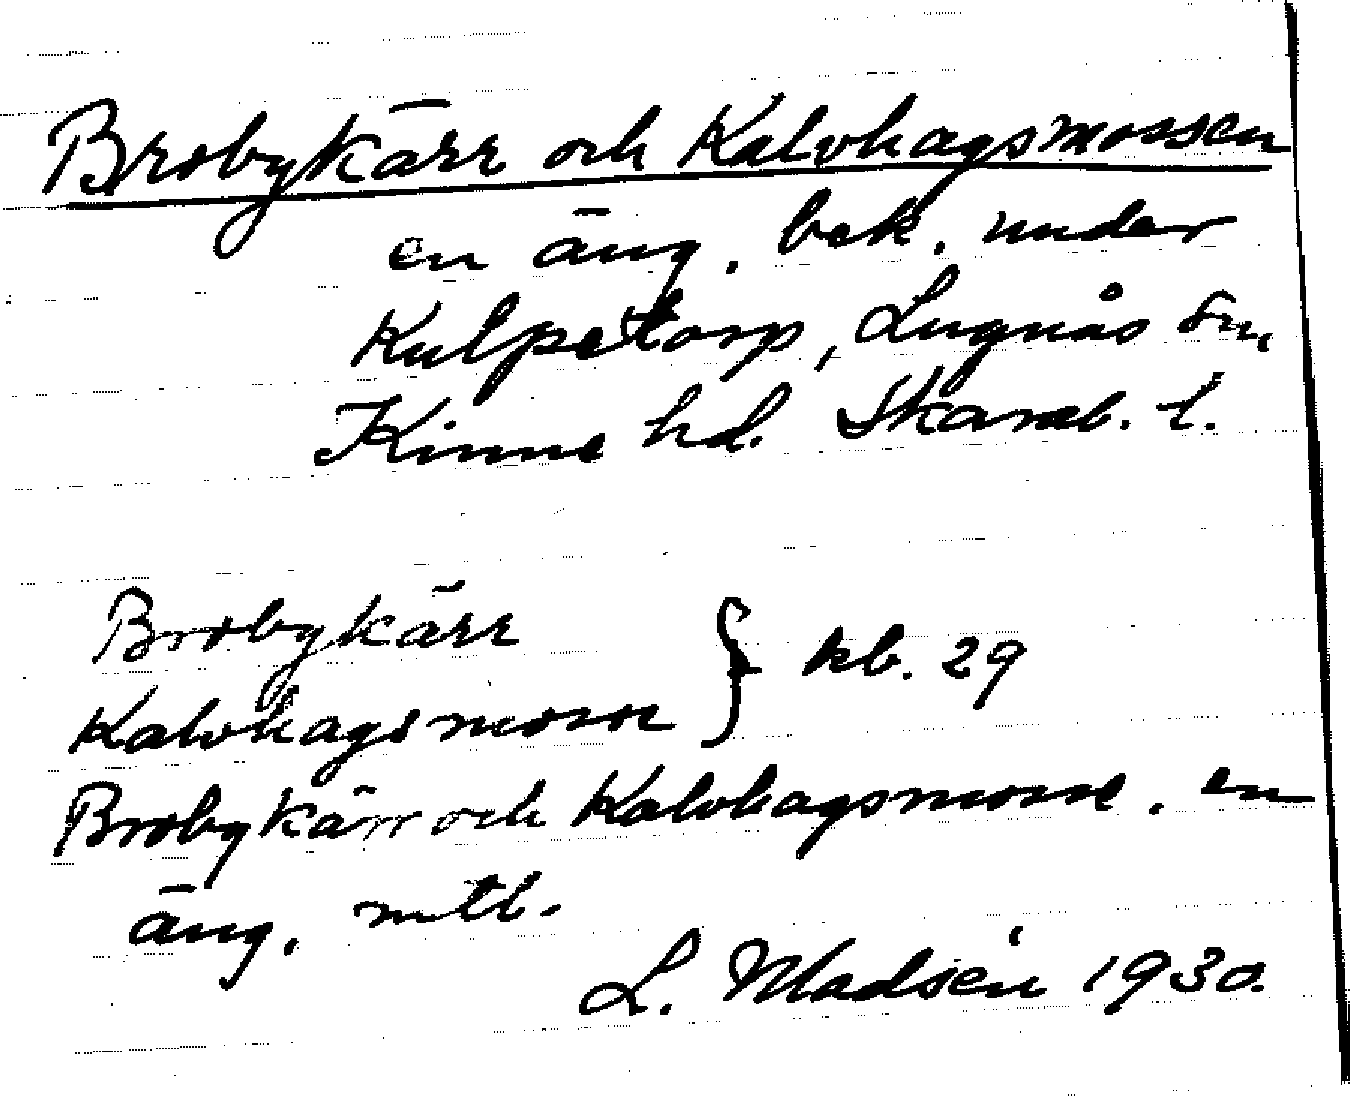 Brobykärr och Kalvhagsmossen
en äng, bek. under
Kulpetorp, Lugnås sn,
Kinne hd. Skarab. l.
Brobykärr
Kalvhagsmosse } kb. 29
Brobykärr och Kalvhagsmosse, en
äng, mtl.
L. Madsén 1930.